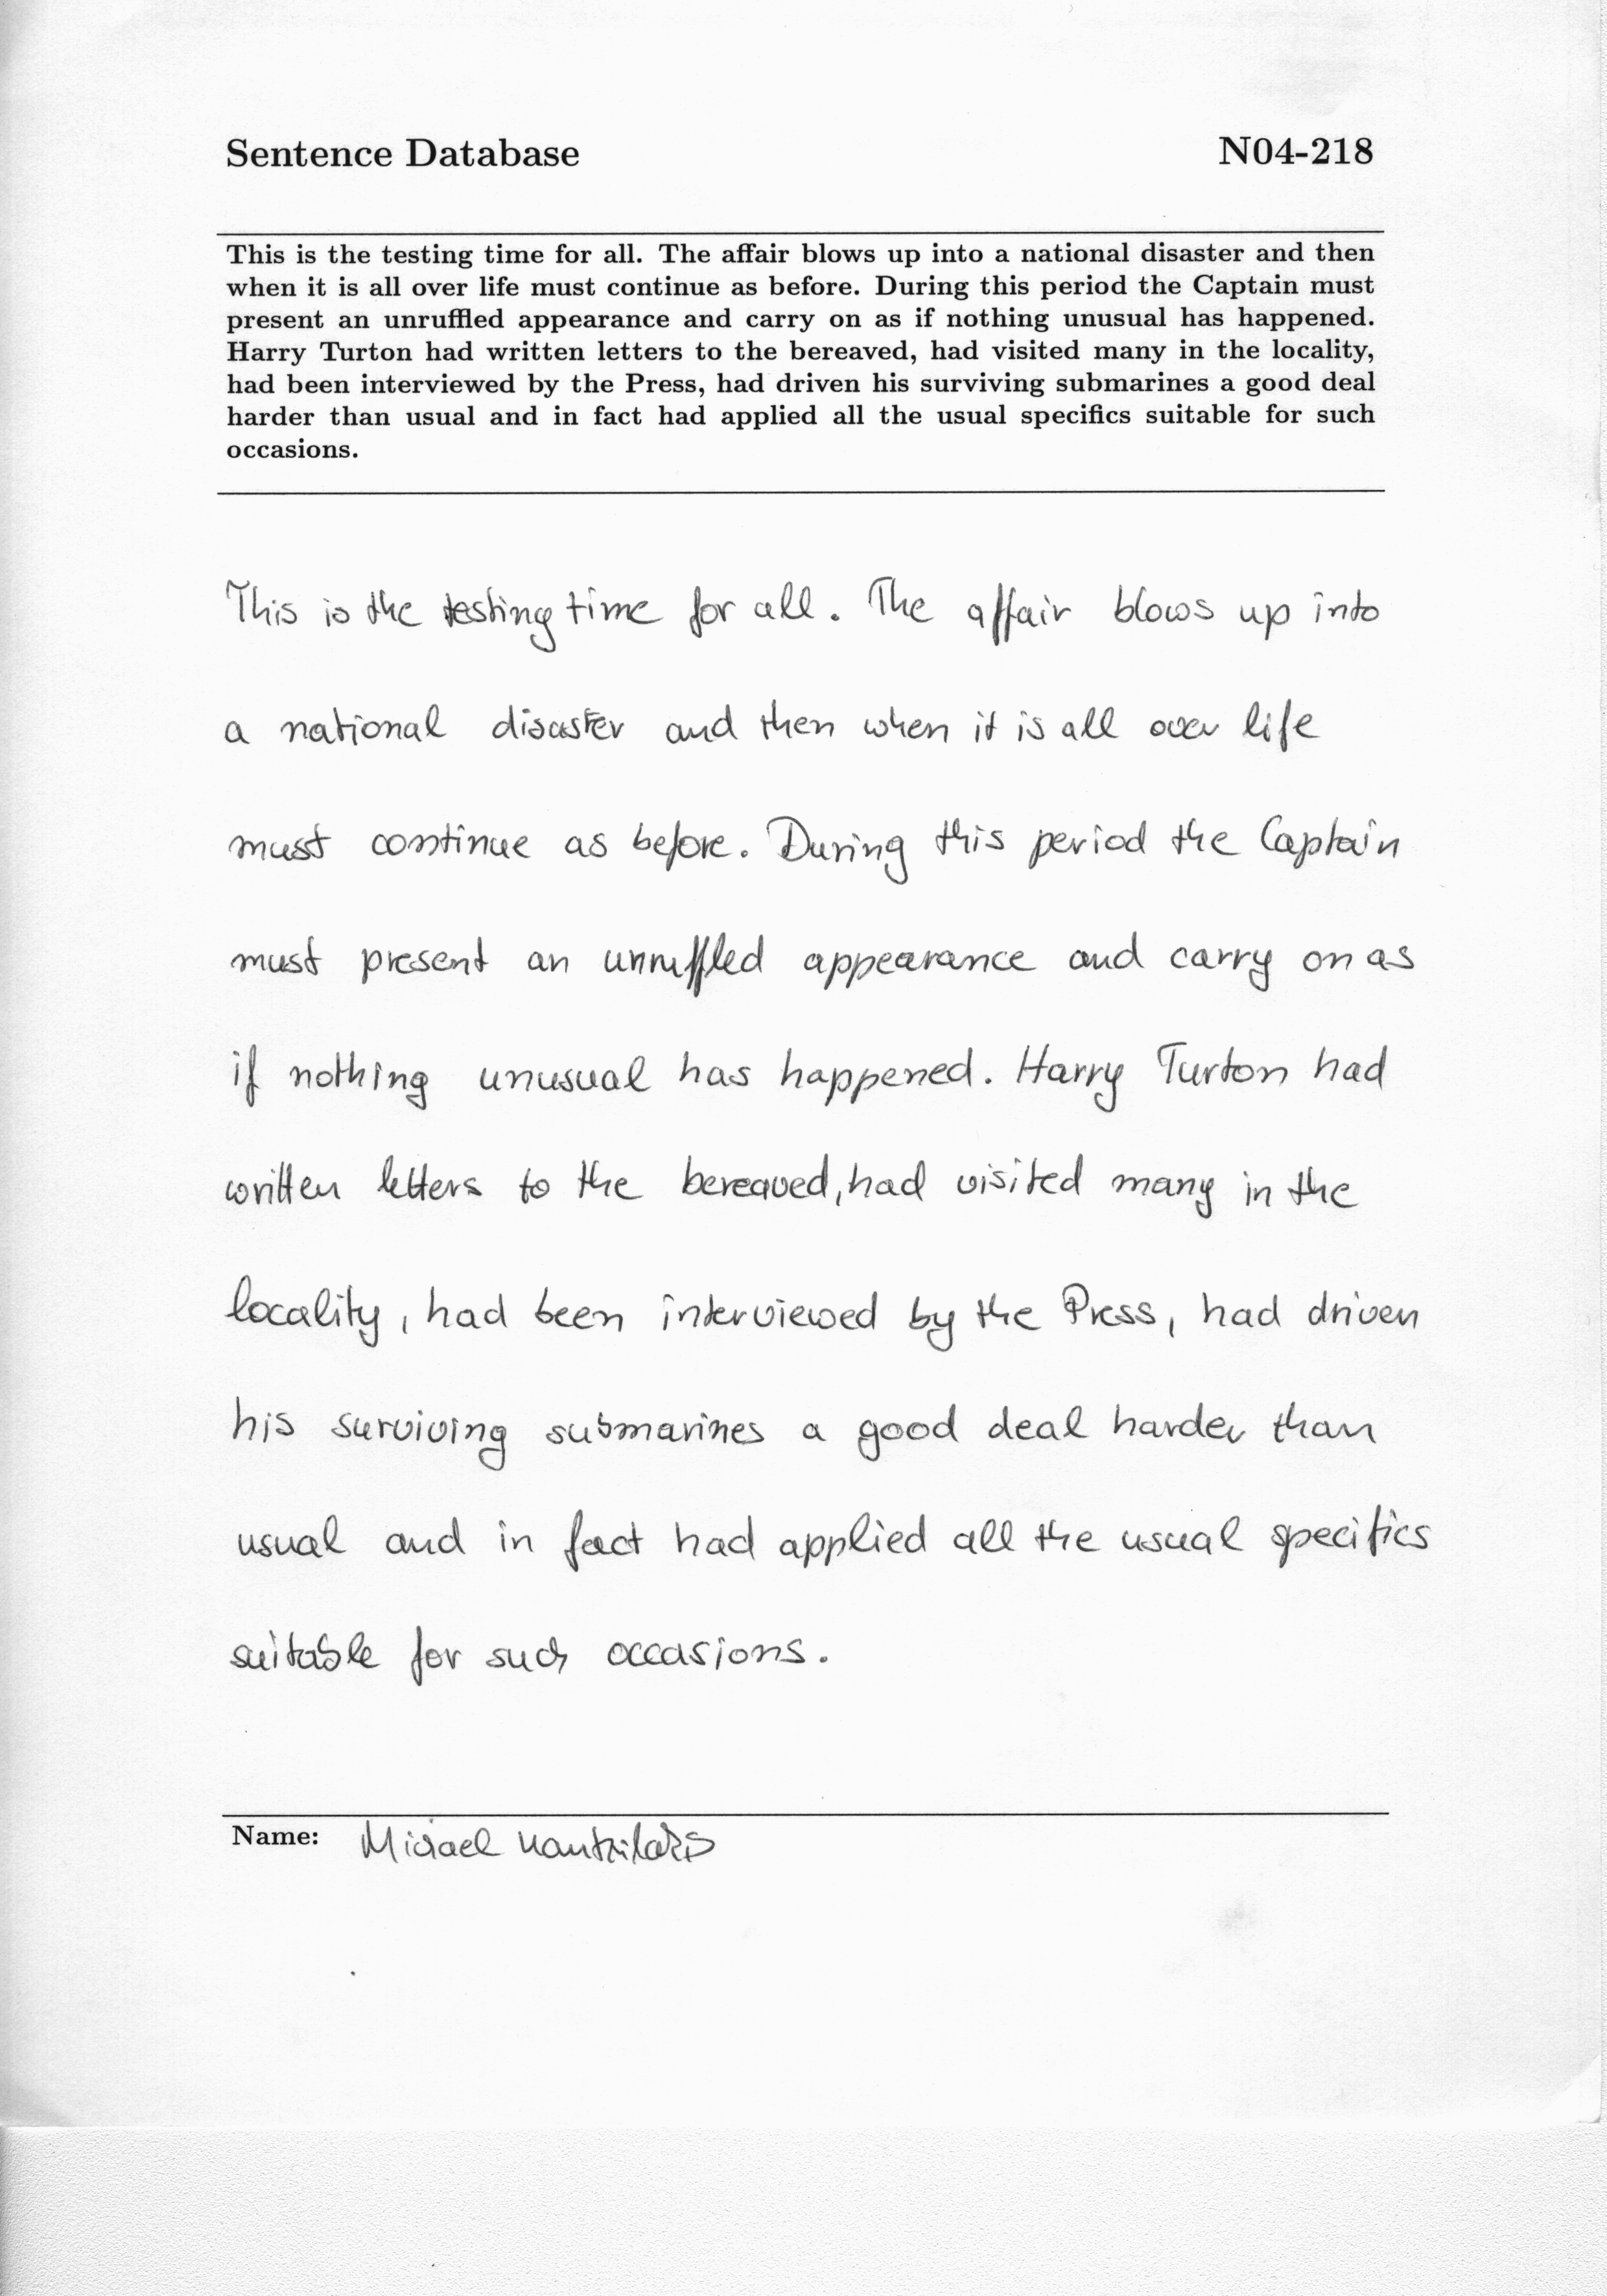 Sentence Database N04-218
This is the testing time for all. The affair blows up into a national disaster and then
when it is all over life must continue as before. During this period the Captain must
present an unruffled appearance and carry on as if nothing unusual has happened.
Harry Turton had written letters to the bereaved, had visited many in the locality,
had been interviewed by the Press, had driven his surviving submarines a good deal
harder than usual and in fact had applied all the usual specifics suitable for such
occasions.
This is the testing time for all. The affair blows up into
a national disaster and then when it is all over life
must continue as before. During this period the Captain
must present an unruffled appearance and carry on as
if nothing unusual has happened. Harry Turton had
written letters to the bereaved, had visited many in the
locality, had been interviewed by the Press, had driven
his surviving submarines a good deal harder than
usual and in fact had applied all the usual specifics
suitable for such occasions.
Name: Michael